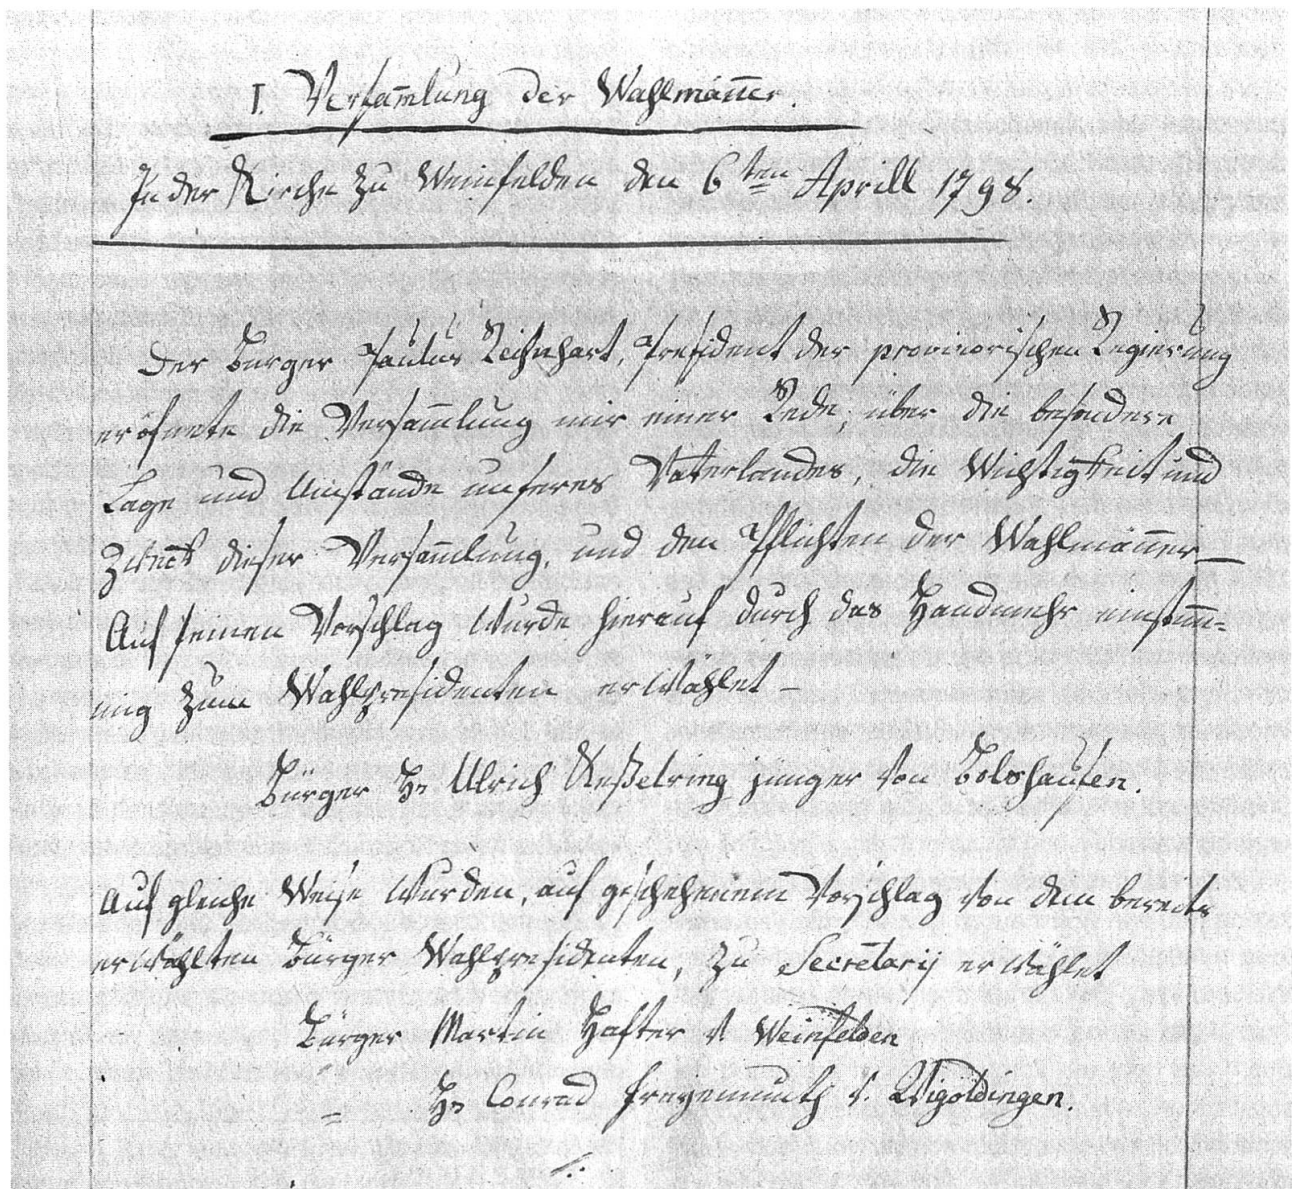 I. Versam̄lung der Wahlmäñer.
In der Kirche zu Weinfelden den 6ten Aprill 1798.
Der Bürger Paulus Reinhart, President der provisorischen Regierung
eröfnete die Versam̄lung mit einer Rede, über die besondere
Lage und Umstände unseres Vaterlandes, die Wichtigkeit und
Zwek dieser Versam̄lung, und den Pflichten der Wahlmäñer —
Auf seinen Vorschlag wurde hierauf durch das Handmehr einstim̄-
mig zum Wahlpresidenten erwählet
Bürger Hs. Ulrich Keßelring jünger von Bolshausen.
Auf gleiche Weise wurden, auf geschehenem Vorschlag von dem bereits
erwählten Bürger Wahlpresidenten, zu Secretarij erwählet
Bürger Martin Hafter v Weinfelden
= Hs Conrad Freyenmuth v. Wigoldingen.